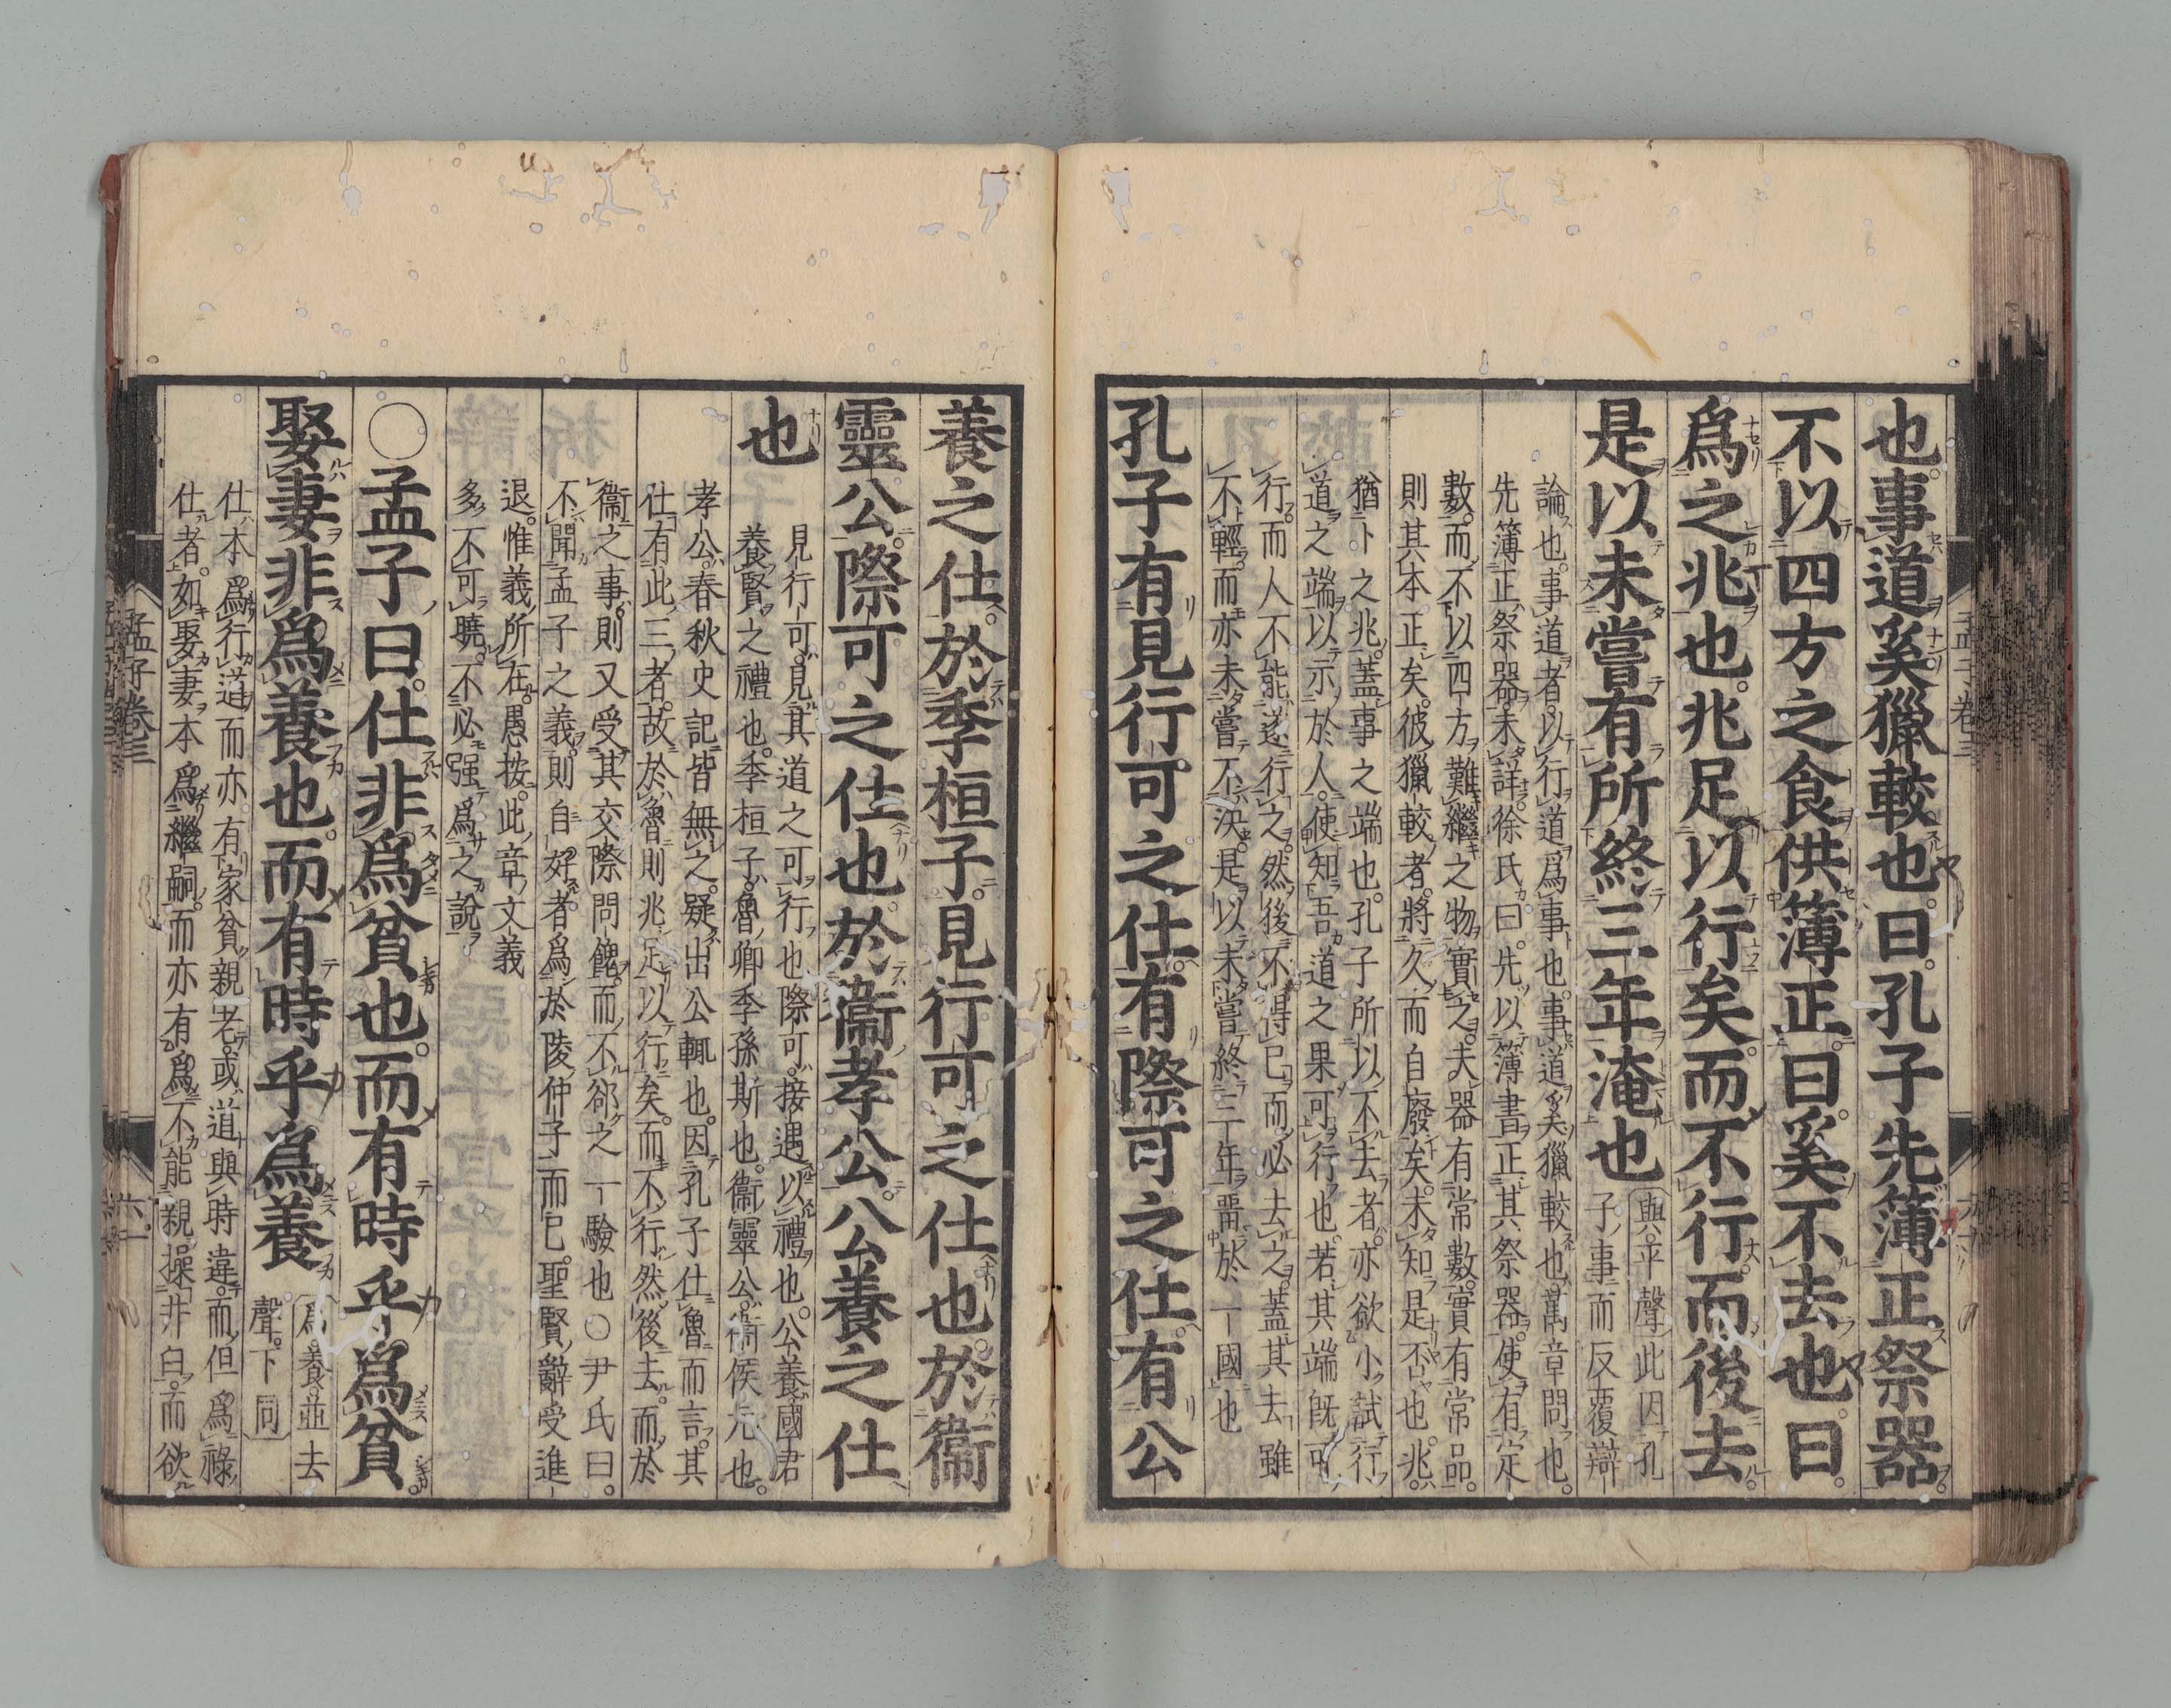 也。事道奚獵較也。曰。孔子先簿正祭器。
不以四方之食供簿正。曰。奚不去也。曰。
爲之兆也。兆足以行矣。而不行。而後去。
是以未嘗有所終三年淹也
與。平聲。此因孔
子事而反覆辯
論也。事道者。以行道爲事也。事道奚獵較也。萬章問也。
先簿正祭器。未詳。徐氏曰。先以簿書正其祭器。使有定
數。而不以四方難繼之物實之。夫器有常數。實有常品。
則其本正矣。彼獵較者。將久而自廢矣。未知是否也。兆。
猶卜之兆。蓋事之端也。孔子所以不去者。亦欲小試行
道之端。以示於人。使知吾道之果可行也。若其端既可
行。而人不能遂行之。然後不得已而必去之。蓋其去雖
不輕。而亦未嘗不決。是以未嘗終三年畱於一國也
孔子有見行可之仕。有際可之仕。有公
養之仕。於季桓子。見行可之仕也。於衞
靈公。際可之仕也。於衞孝公。公養之仕
也
見行可。見其道之可行也。際可。接遇以禮也。公養。國君
養賢之禮也。季桓子。魯卿季孫斯也。衞靈公。衞侯元也。
孝公。春秋史記皆無之。疑出公輒也。因孔子仕魯而言。其
仕有此三者。故於魯則兆足以行矣。而不行。然後去。而於
衞之事。則又受其交際問餽。而不郤之一驗也○尹氏曰。
不聞孟子之義。則自好者爲於陵仲子而已。聖賢辭受進
退。惟義所在。愚按。此章文義
多不可曉。不必强爲之說
○孟子曰。仕非爲貧也。而有時乎爲貧。
娶妻非爲養也。而有時乎爲養
爲養。並去
聲。下同
仕本爲行道。而亦有家貧親老。或道與時違。而但爲祿
仕者。如娶妻本爲繼嗣。而亦有爲不能親操井臼。而欲
孟子卷三
六十一